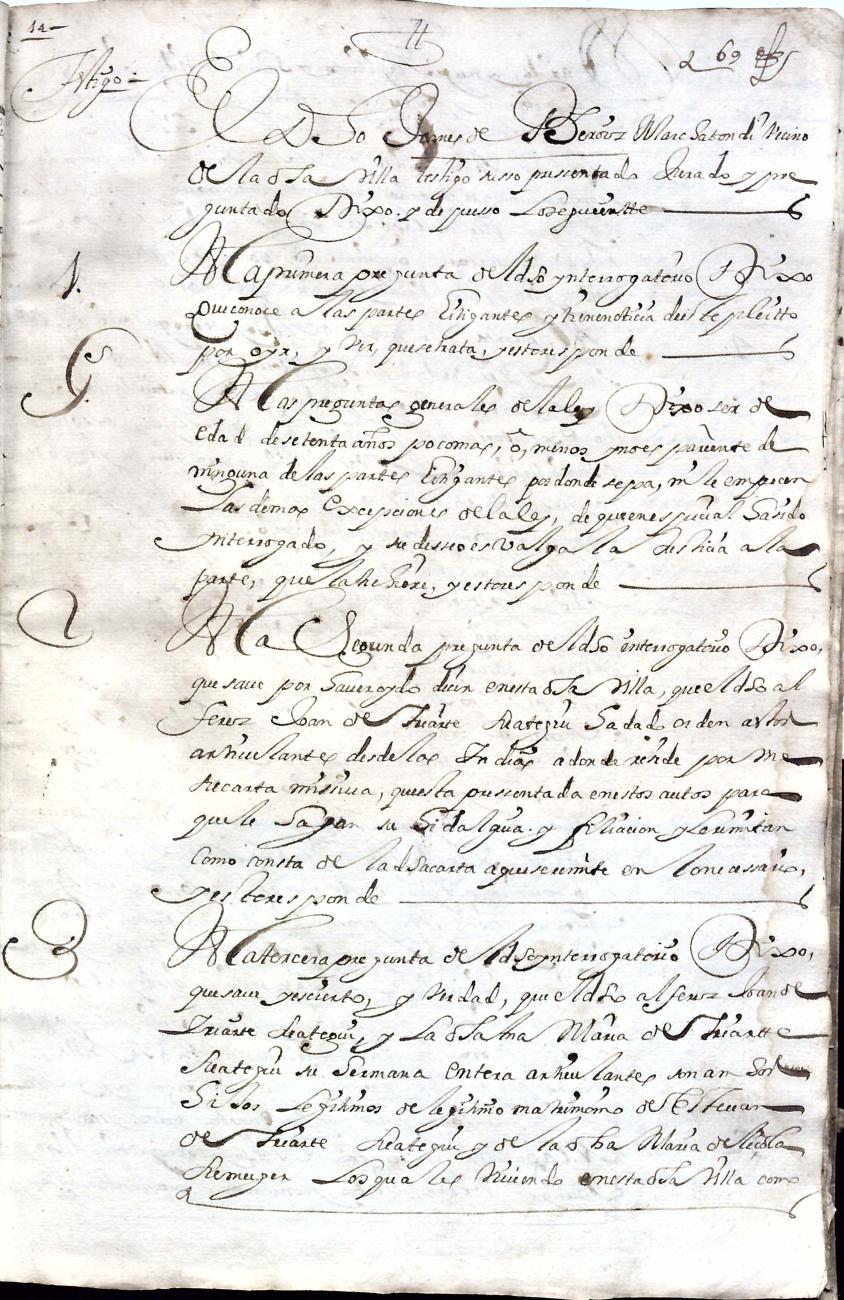 14
69
Testigo
El dho Domes de
de la dha Villa testigo susso pressentado Jurado y pre
guntado Dixo y depusso lo seguientte
1. A la primera pregunta del dho ynterrogatorio Dixo
que conoce a las partes litigantes y tiene noticia deste pleitto
por oyr, y ver, que se trata, y esto responde
Gs. A las preguntas generales de la ley Dixo ser de
edad de setenta años poco mas, o, menos y no es pariente de
ninguna de las partes litigantes por donde sepa, ni le empecen
las demas Excepciones de la ley, de que en especial ha sido
ynterrogado, y su desseo es valga la Justicia a la
parte, que la hubiere, y esto responde
2 A la Segunda pregunta del dho interrogatorio Dixo,
que save por haver oydo decir en esta dha Villa, que el dho al
ferez Joan de Yriarte Reategui ha dado orden a los
articulantes desde las Indias a donde reside por me
de carta missiva, que esta pressentada en estos autos para
que le hagan su hidalguia y filiacion y lo remitan
como consta de la dha carta a que se remite en lo necessario,
y esto responde
3 A la tercera pregunta del dho ynterrogatorio Dixo,
que save yes cierto, y verdad, que el dho alferez Joan de
Yriarte Reategui, y la dha Ana Maria de Yriartte
Reategui su hermana entera articulantes son ambos
hijos legitimos de legitimo matrimonio de Estevan
de Yriarte Reategui y de la dha Maria de
su muger los quales viviendo en esta dha Villa como